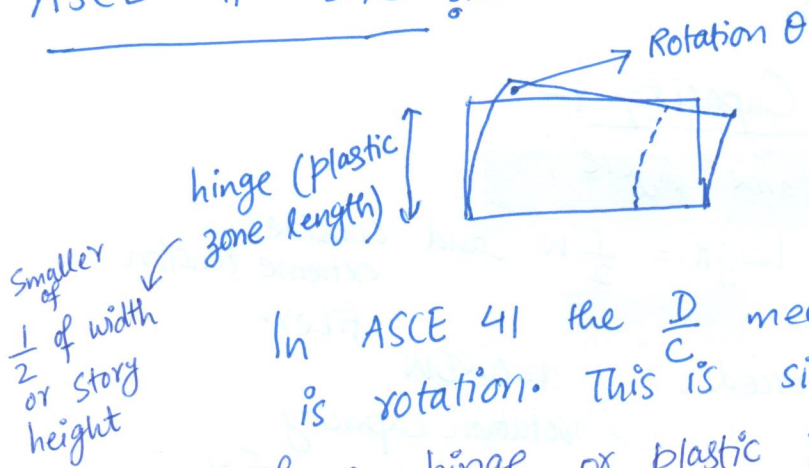 ASCE
Rotation θ
hinge (plastic
zone length)
Smaller
of
1/2 of width
or story
height
In ASCE 41 the D/C
is rotation. This is
hinge or plastic